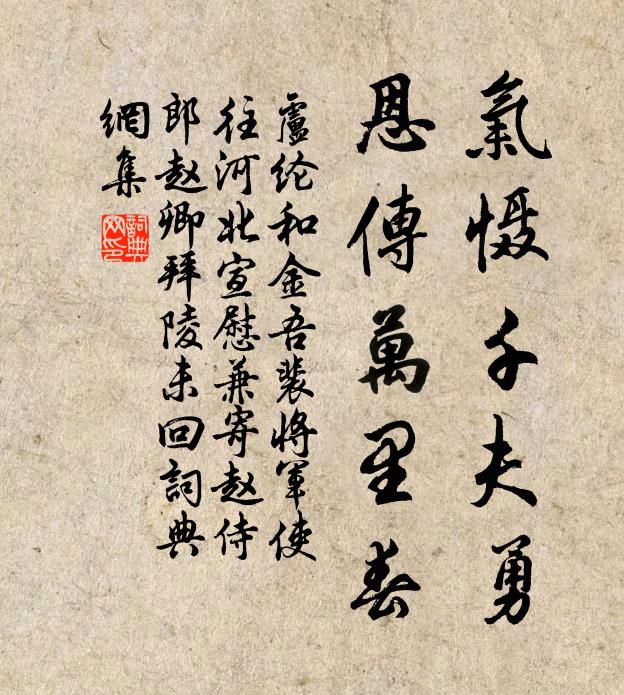 氣慑千夫勇
恩傳萬里春
盧纶和金吾裴將軍使
往河北宣慰兼寄赵侍
郎赵卿拜陵未回詞典
網集
詞典
网印